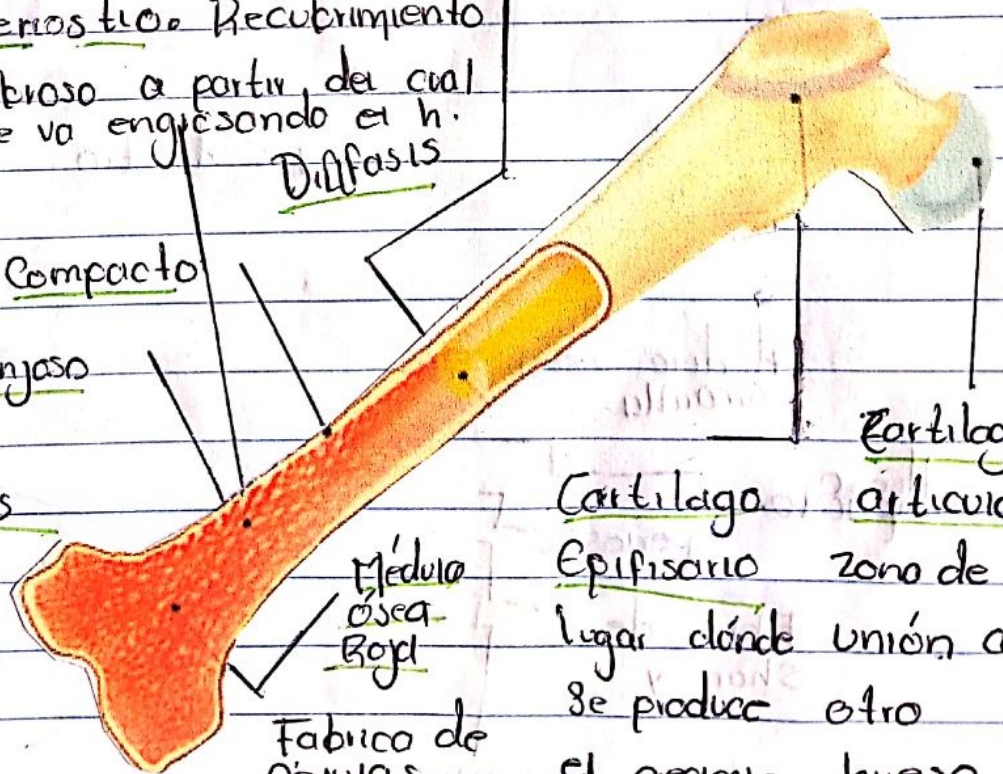 eriostio. Recubrimiento
broso a partir del cual
e va engrosando el h.
Diáfasis
Compacto
njoso
s
Médula
Ósea
Roja
Fabrica de
Cartilago
Epifisario
lugar dónde
se produce
el
Cartilag
articula
Zona de
unión
otro
hueso